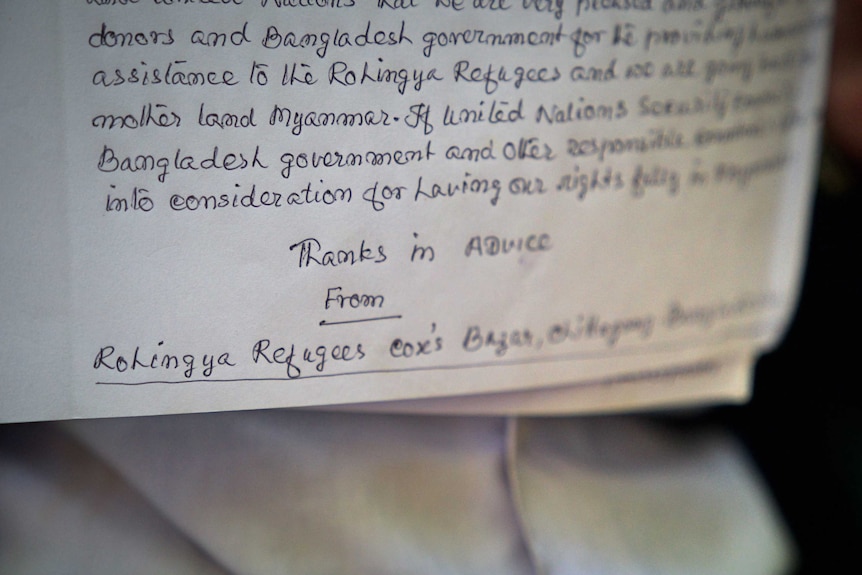 Nations that we are very pleased and
donors and Bangladesh government for be providing
assistance to the Rohingya Refugees and we are going
mother land Myanmar. If United Nations Security
Bangladesh government and other responsible
into consideration for having our rights fully in
Thanks in ADVICE
From
Rohingya Refugees Cox's Bazar, Chittagong Bangladesh